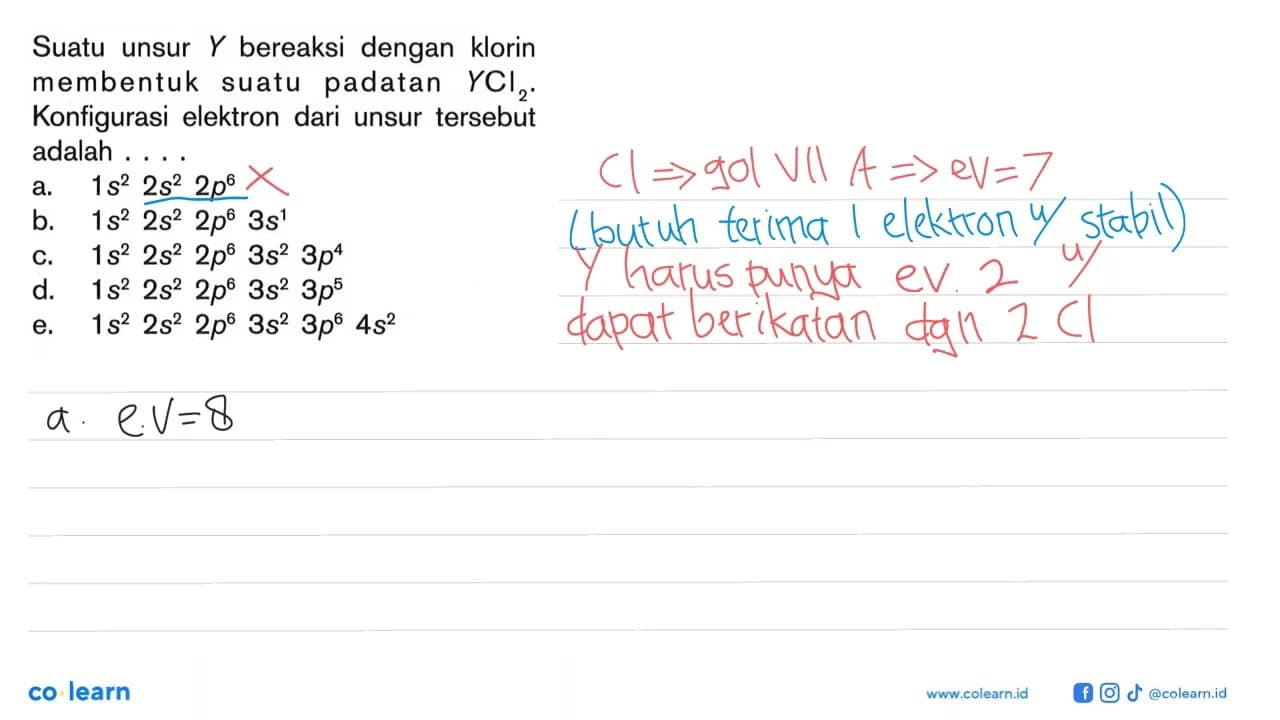 Suatu unsur Y bereaksi dengan klorin
membentuk suatu padatan YCl₂.
Konfigurasi elektron dari unsur tersebut
adalah . . . .
a. 1s² 2s² 2p⁶ X
b. 1s² 2s² 2p⁶ 3s¹
c. 1s² 2s² 2p⁶ 3s² 3p⁴
d. 1s² 2s² 2p⁶ 3s² 3p⁵
e. 1s² 2s² 2p⁶ 3s² 3p⁶ 4s²
Cl => gol VII A => ev = 7
(butuh terima 1 elektron u/ stabil)
Y harus punya ev. 2 u/
dapat berikatan dgn 2 Cl
a. e.V = 8
co learn
www.colearn.id
@colearn.id